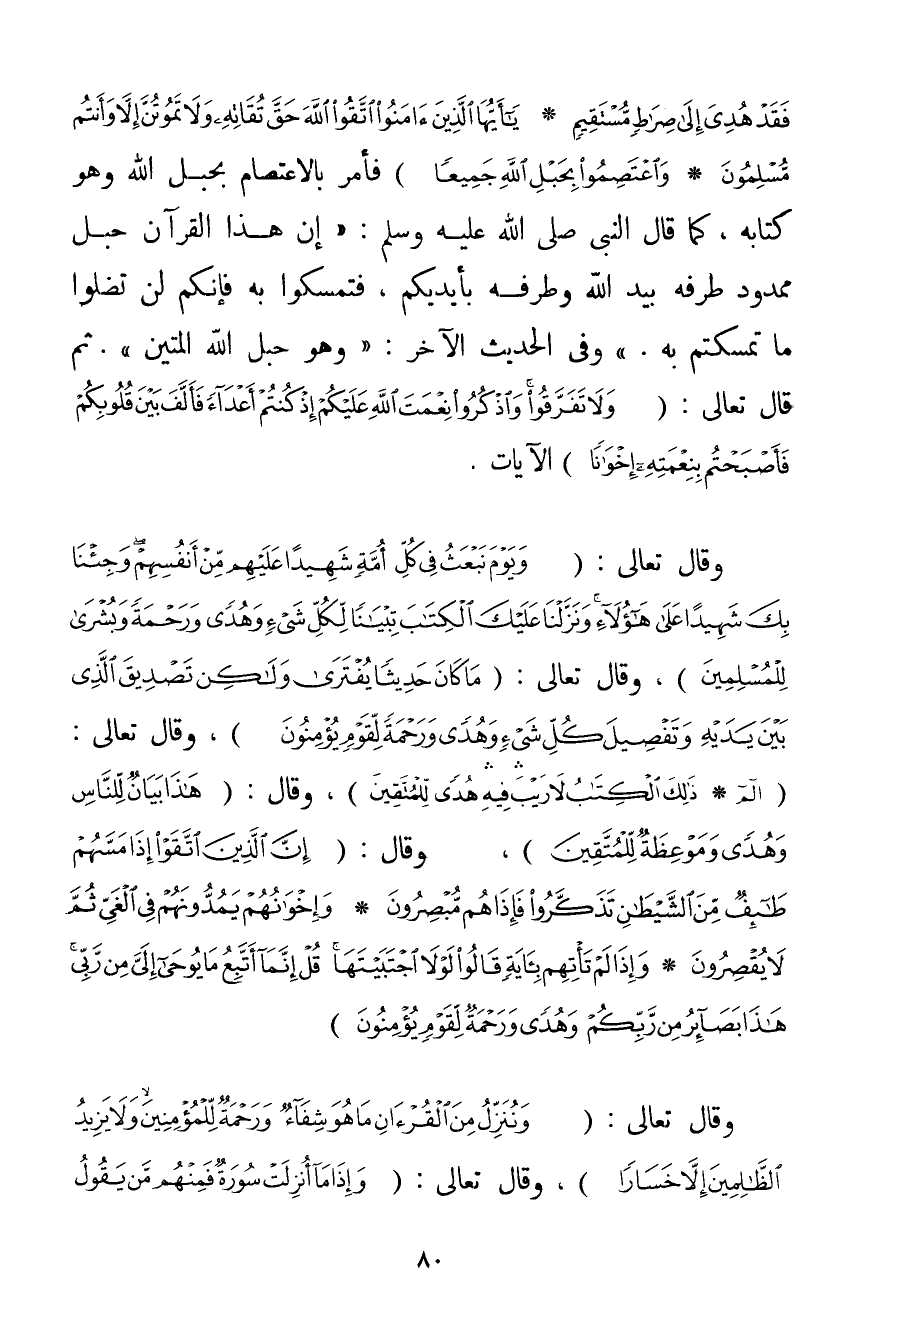 فَقَدْ هُدِىَ إِلَىٰ صِرَٰطٍ مُّسْتَقِيمٍ * يَٰٓأَيُّهَا ٱلَّذِينَ ءَامَنُوا۟ ٱتَّقُوا۟ ٱللَّهَ حَقَّ تُقَاتِهِۦ وَلَا تَمُوتُنَّ إِلَّا وَأَنتُم
مُّسْلِمُونَ * وَٱعْتَصِمُوا۟ بِحَبْلِ ٱللَّهِ جَمِيعًا ) فأمر بالاعتصام بحبل الله وهو
كتابه ، كما قال النبى صلى الله عليه وسلم : « إن هذا القرآن حبل
ممدود طرفه بيد الله وطرفه بأيديكم ، فتمسكوا به فإنكم لن تضلوا
ما تمسكتم به . » وفى الحديث الآخر : « وهو حبل الله المتين » . ثم
قال تعالى : ( وَلَا تَفَرَّقُوا۟ ۚ وَٱذْكُرُوا۟ نِعْمَتَ ٱللَّهِ عَلَيْكُمْ إِذْ كُنتُمْ أَعْدَآءً فَأَلَّفَ بَيْنَ قُلُوبِكُمْ
فَأَصْبَحْتُم بِنِعْمَتِهِۦٓ إِخْوَٰنًا ) الآيات .
وقال تعالى : ( وَيَوْمَ نَبْعَثُ فِى كُلِّ أُمَّةٍ شَهِيدًا عَلَيْهِم مِّنْ أَنفُسِهِمْ ۖ وَجِئْنَا
بِكَ شَهِيدًا عَلَىٰ هَٰٓؤُلَآءِ ۚ وَنَزَّلْنَا عَلَيْكَ ٱلْكِتَٰبَ تِبْيَٰنًا لِّكُلِّ شَىْءٍ وَهُدًى وَرَحْمَةً وَبُشْرَىٰ
لِلْمُسْلِمِينَ ) ، وقال تعالى : ( مَا كَانَ حَدِيثًا يُفْتَرَىٰ وَلَٰكِن تَصْدِيقَ ٱلَّذِى
بَيْنَ يَدَيْهِ وَتَفْصِيلَ كُلِّ شَىْءٍ وَهُدًى وَرَحْمَةً لِّقَوْمٍ يُؤْمِنُونَ ) ، وقال تعالى :
( الٓمٓ * ذَٰلِكَ ٱلْكِتَٰبُ لَا رَيْبَ ۛ فِيهِ ۛ هُدًى لِّلْمُتَّقِينَ ) ، وقال : ( هَٰذَا بَيَانٌ لِّلنَّاسِ
وَهُدًى وَمَوْعِظَةٌ لِّلْمُتَّقِينَ ) ، وقال : ( إِنَّ ٱلَّذِينَ ٱتَّقَوْا۟ إِذَا مَسَّهُمْ
طَٰٓئِفٌ مِّنَ ٱلشَّيْطَٰنِ تَذَكَّرُوا۟ فَإِذَا هُم مُّبْصِرُونَ * وَإِخْوَٰنُهُمْ يَمُدُّونَهُمْ فِى ٱلْغَىِّ ثُمَّ
لَا يُقْصِرُونَ * وَإِذَا لَمْ تَأْتِهِم بِـَٔايَةٍ قَالُوا۟ لَوْلَا ٱجْتَبَيْتَهَا ۚ قُلْ إِنَّمَآ أَتَّبِعُ مَا يُوحَىٰٓ إِلَىَّ مِن رَّبِّى ۚ
هَٰذَا بَصَآئِرُ مِن رَّبِّكُمْ وَهُدًى وَرَحْمَةٌ لِّقَوْمٍ يُؤْمِنُونَ )
وقال تعالى : ( وَنُنَزِّلُ مِنَ ٱلْقُرْءَانِ مَا هُوَ شِفَآءٌ وَرَحْمَةٌ لِّلْمُؤْمِنِينَ ۙ وَلَا يَزِيدُ
ٱلظَّٰلِمِينَ إِلَّا خَسَارًا ) ، وقال تعالى : ( وَإِذَا مَآ أُنزِلَتْ سُورَةٌ فَمِنْهُم مَّن يَقُولُ
٨٠